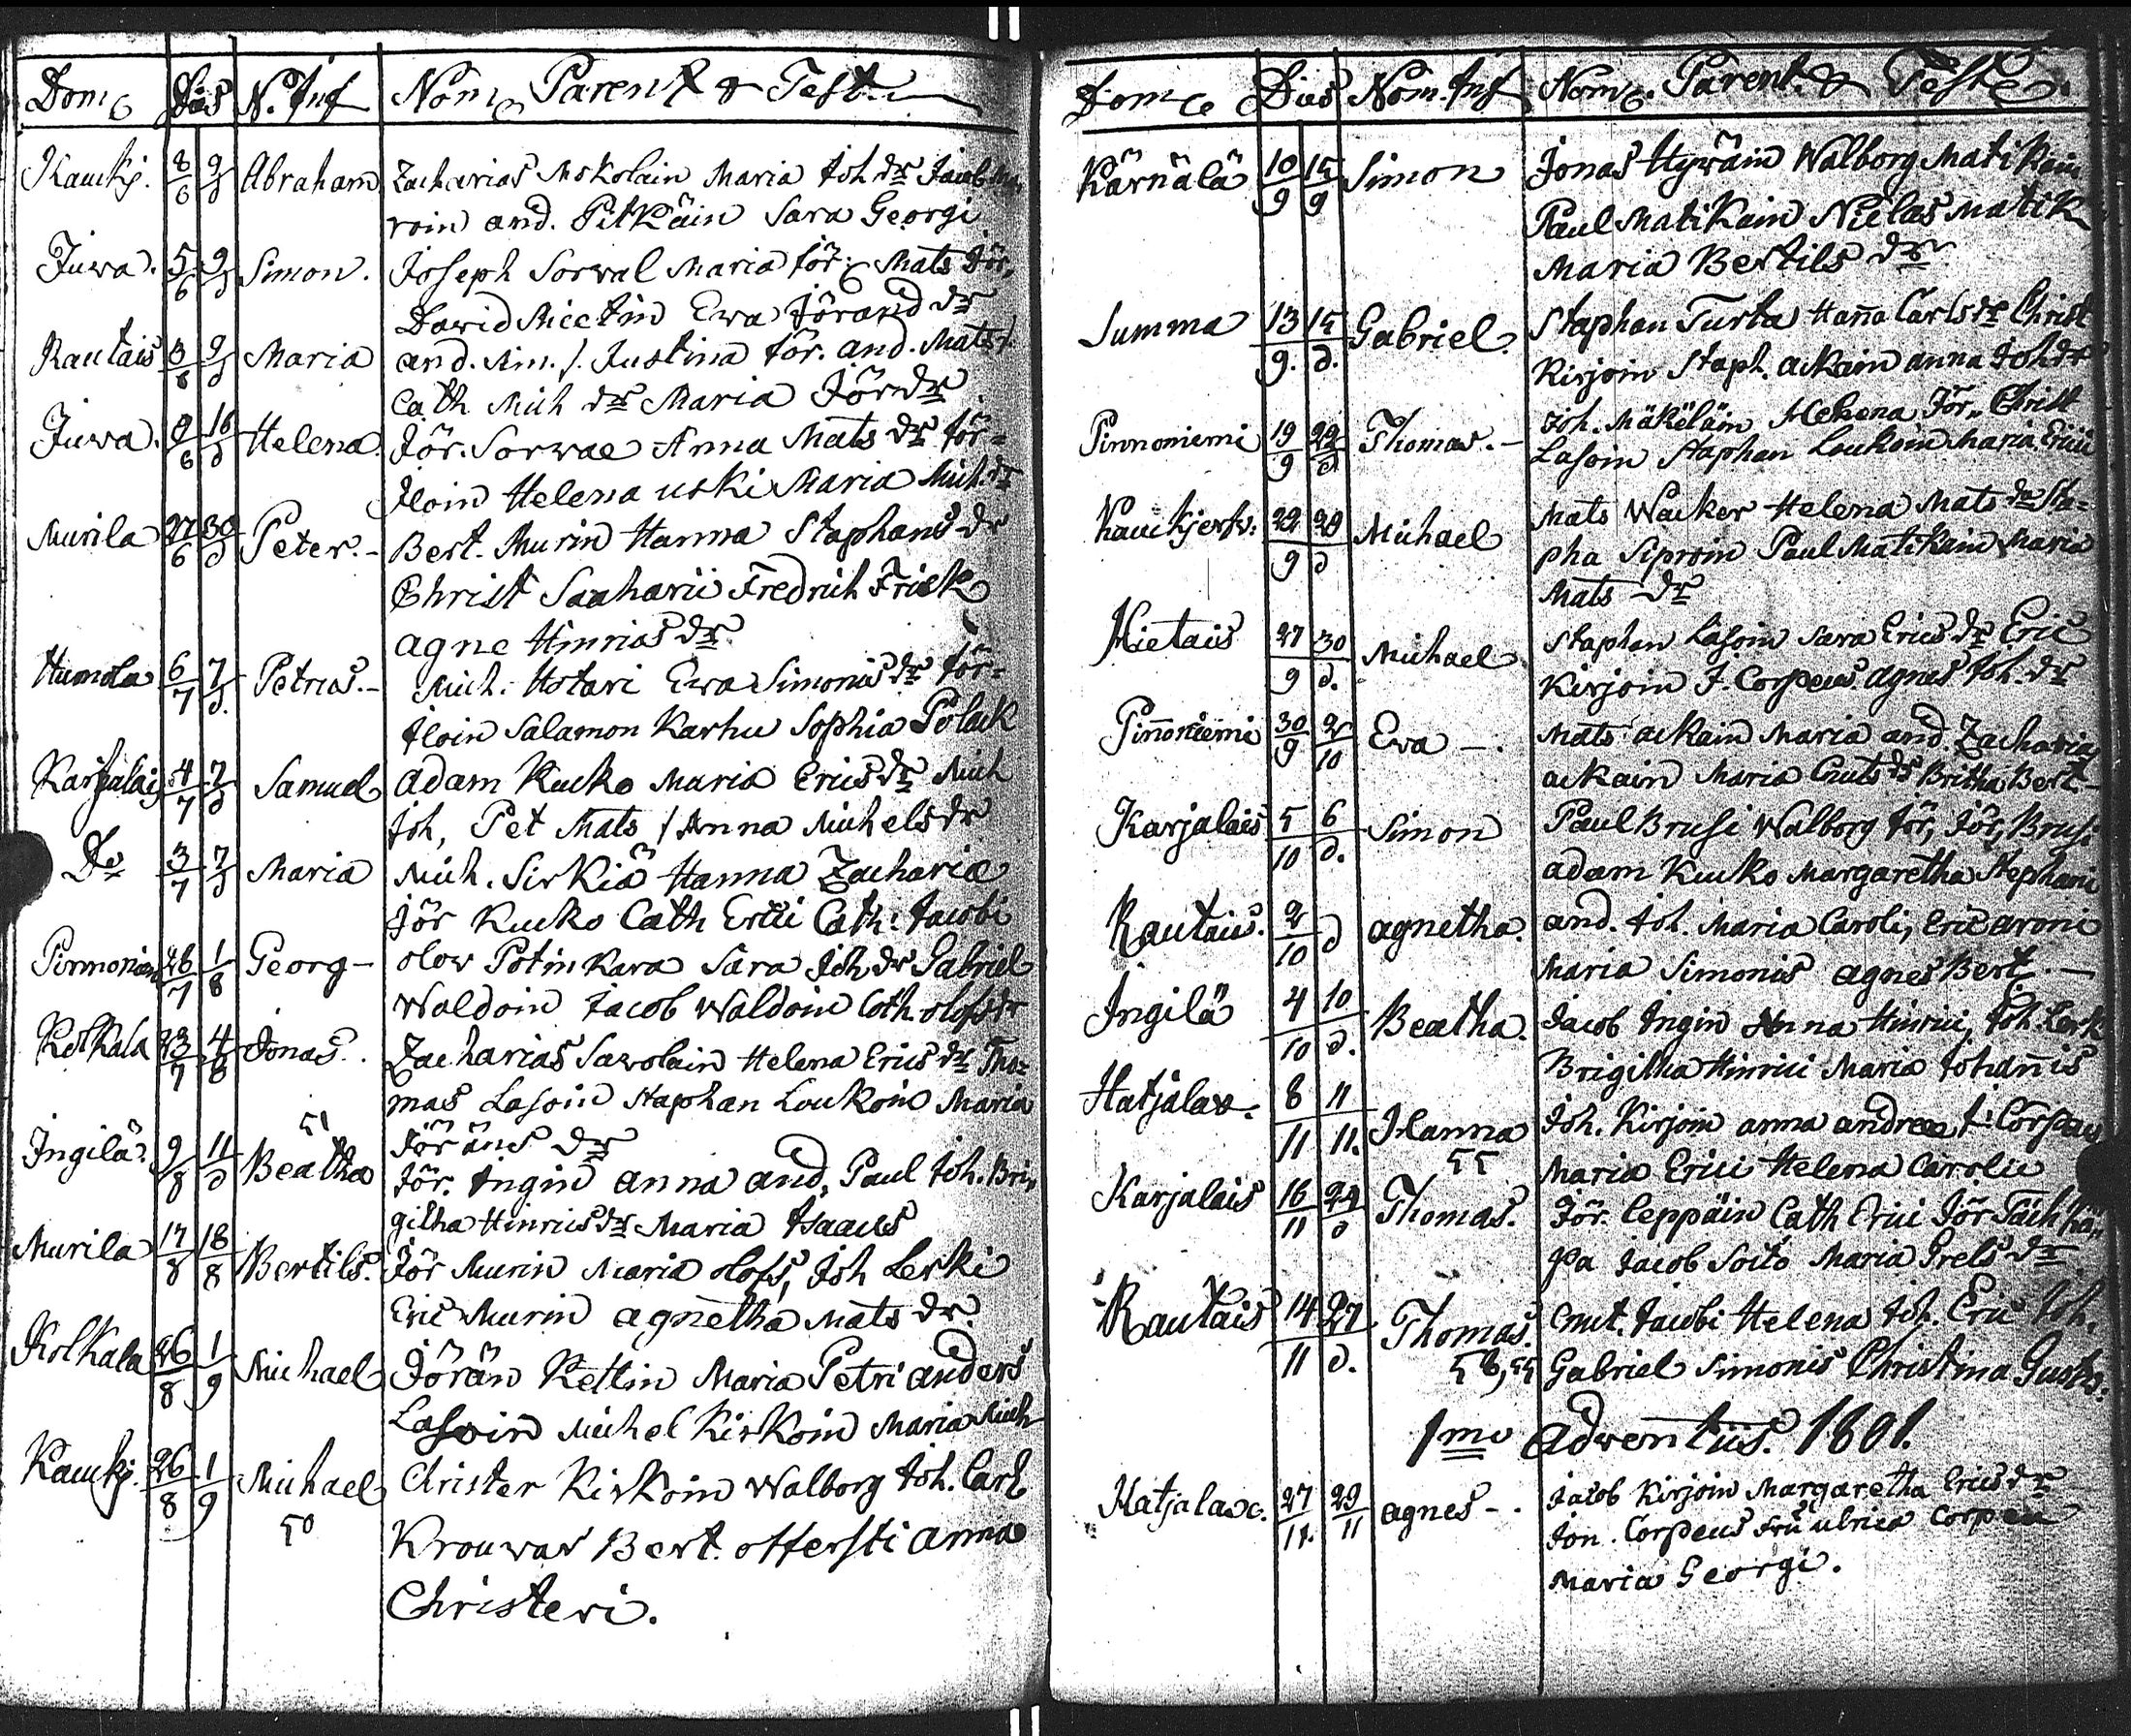 Dom Dies N. Inf Nom Parent & Test
Kaukj. 8/6 9/d Abraham Zacharias Mokolain Maria Joh dr Jacob
roin and. Pitkäin Sara Georgi
Juwa. 5/6 9/d Simon. Joseph Sorwal Maria Jör. Mats Jör,
David Mietin Ewa Jörand dr
Rautais 3/6 9/d Maria and. Sim. /. Justina Jör. and. Mats /.
Cath Mich dr Maria Jör dr
Juwa. 9/6 16/d Helena. Jör. Sorwae Anna Mats dr Jör=
Iloin Helena uski Maria Mich. dr
Murila 27/6 30/d Peter.- Bert. Murin Hanna Staphans dr
Christ Saaharii Fredrich Frisk
agne Hinrics dr
Humola 6/7 7/d. Petrus.- Mich. Hotari Ewa Simonis dr Jör=
Iloin Salamon Karhu Sophia Polack
Karjalais 4/7 7/d Samuel adam Kucko Maria Erics dr Mich
Joh, Pet Mats / Anna Michels dr
Do 3/7 7/d Maria Mich. Sirkiä Hanna Zachariæ
Jör Kucko Cath Erici Cath. Jacobi
Pinnoniemi 26/7 1/8 Georg- olow Potinkara Sara Joh dr Gabriel
Waldoin Jacob Waldoin Cath. olofs dr
Kolkala 23/7 4/8 Jonas. Zacharias Sawolain Helena Erics dr Tho=
mas Lasoin Staphan Loukoin Maria
51 Jöräns dr
Ingilä. 9/8 11/d Beatha Jör. Ingin anna and. Paul Joh. Bri,,
githa Hinrics dr Maria Isaacs
Murila 17/8 18/8 Bertils. Jör Murin Maria olofs, Joh Lerki
Eric Murin agnetha Mats dr.
Kolkala 26/8 1/9 Michael Jörän Kettin Maria Petri anders
Lasoin Michel Kirkoin Maria Mich
Kaukj. 26/8 1/9 Michael Christer Kirkoin Walborg Joh. Carl
50 Krouwar Bert. offersti anna
Christeri.
Dom Dies Nom. Inf Nom. Parent. & Teste.
Kärnälä 10/9 15/9 Simon Jonas Hywäin Walborg Matikain
Paul Matikain Niclas Matik
Maria Bertils dr
Summa 13/9. 15/d. Gabriel. Staphan Turta Hanna Carls dr Christ
Kirjoin Staph. ackain anna Joh dr
Pinnoniemi 19/9 22/d Thomas.- Joh. Mäkeläin Helena Jör,, Christ
Lasoin Staphan Loukoin Maria Erici
Kauckjerfv: 22/9 29/d Michael Mats Wacker Helena Mats dr Sta=
pha Siproin Paul Matikain Maria
Mats dr
Hietais 27/9 30/d. Michael Staphan Lasoin Sara Erics dr Eric
Kirjoin J. Corpeus. agnes Joh. dr
Pinnoniemi 30/9 2/10 Ewa -. Mats ackain Maria and Zacharias
ackain Maria Cnuts dr Britha Bert-
Karjalais 5/10 6/d. Simon Paul Brusi Walborg Jör, Jör, Brusi
adam Kucko Margaretha Stephani
Rautais. 2/10 d agnetha. and. Joh. Maria Caroli, Eric aroni
Maria Simonis agnes Bert.-
Ingilä 4/10 10/d. Beatha. Jacob Ingin Anna Hinrici, Joh. Lerk
Brigitha Hinrici Maria Johannis
Hatjalax. 8/11 11/11. Hanna Joh. Kirjoin anna andreæ J: Corpeus
55 Maria Erici Helena Caroli
Karjalais 16/11 22/d Thomas. Jör. Leppäin Cath Erici Jör Täckkä,,
pa Jacob Soito Maria Grels dr
Rautais 14/11 27/d. Thomas. Cnut. Jacobi Helena Joh. Eric Joh.
Gabriel Simonis Christina Gusts.
1mo adventus. 1801.
Hatjalax. 27/11. 29/11 agnes-. Jacob Kirjoin Margaretha Erics dr
Jon. Corpeus Fru ulrica Corpeu
Maria Georgi.